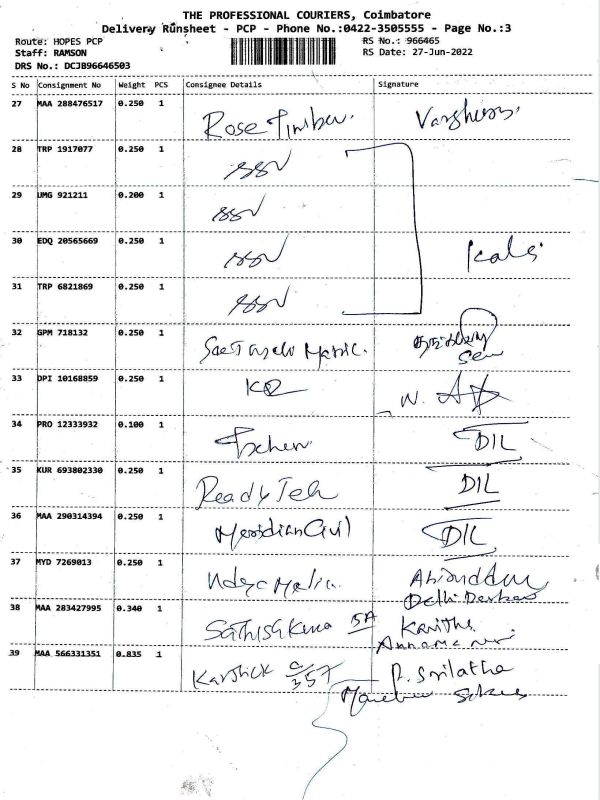 THE PROFESSIONAL COURIERS, Coimbatore
Delivery Runsheet - PCP - Phone No.:0422-3505555 - Page No.:3
Route: HOPES PCP
RS No.: 966465
Staff: RAMSON
RS Date: 27-Jun-2022
DRS No.: DCJB96646503
S No Consignment No Weight PCS Consignee Details Signature
27 MAA 288476517 0.250 1 Rose Timber.
28 TRP 1917077 0.250 1 SSV
29 UMG 921211 0.200 1 SSV
30 EDQ 20565669 0.250 1 SSV Kala
31 TRP 6821869 0.250 1 SSV
32 GPM 718132 0.250 1
33 DPI 10168859 0.250 1
34 PRO 12333932 0.100 1 DIL
35 KUR 693802330 0.250 1 Ready Tech DIL
36 MAA 290314394 0.250 1 Meridian Civil DIL
37 MYD 7269013 0.250 1
38 MAA 283427995 0.340 1 Sathish Kuma 5A Kavitha
39 MAA 566331351 0.835 1 Karthick C/357 P. Srilatha